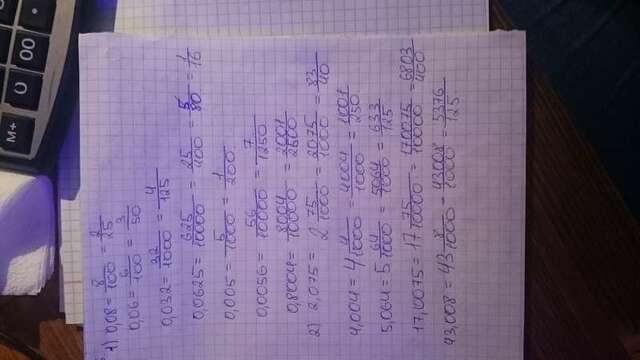 M+ 0 00 •
1) 0,08 = 8/100 = 2/25
0,06 = 6/100 = 3/50
0,032 = 32/1000 = 4/125
0,0625 = 625/10000 = 25/400 = 5/80 = 1/16
0,005 = 5/1000 = 1/200.
0,0056 = 56/10000 = 7/1250
0,8004 = 8004/10000 = 2001/2500
2) 2,075 = 2 75/1000 = 2075/1000 = 83/40
4,004 = 4 4/1000 = 4004/1000 = 1001/250
5,064 = 5 64/1000 = 5064/1000 = 633/125
17,0075 = 17 75/10000 = 170075/10000 = 6803/400
43,008 = 43 8/1000 = 43008/1000 = 5376/125